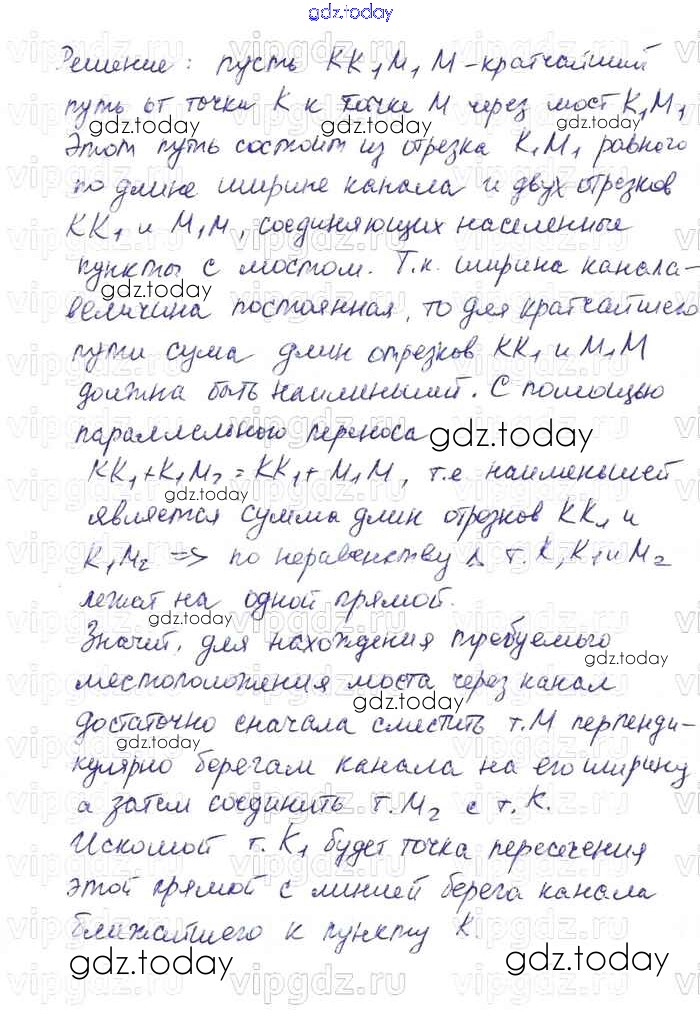 gdz.today
Решение: пусть KK₁M₁M-кратчайший
путь от точки K к точке M через мост K₁M₁
gdz.today gdz.today gdz.today
Этот путь состоит из отрезка K₁M₁ равного
по длине ширине канала и двух отрезков
KK₁ и M₁M, соединяющих населенные
пункты с мостом. Т.к. ширина канала-
gdz.today
величина постоянная, то для кратчайшего
пути сума длин отрезков KK₁ и M₁M
должна быть наименьшей. С помощью
параллельного переноса gdz.today
KK₁+K₁M₂=KK₁+M₁M, т.е. наименьшей
gdz.today
является сумма длин отрезков KK₁ и
K₁M₂ => по неравенству ∆ т. K, K₁ и M₂
лежат на одной прямой.
gdz.today
Значит, для нахождения требуемого
gdz.today
местоположения моста через канал
достаточно сначала сместить т.M перпенди-
gdz.today
кулярно берегам канала на его ширину
а затем соединить т.M₂ с т.K.
Искомой т.K₁ будет точка пересечения
этой прямой с линией берега канала
ближайшего к пункту K
gdz.today gdz.today gdz.today